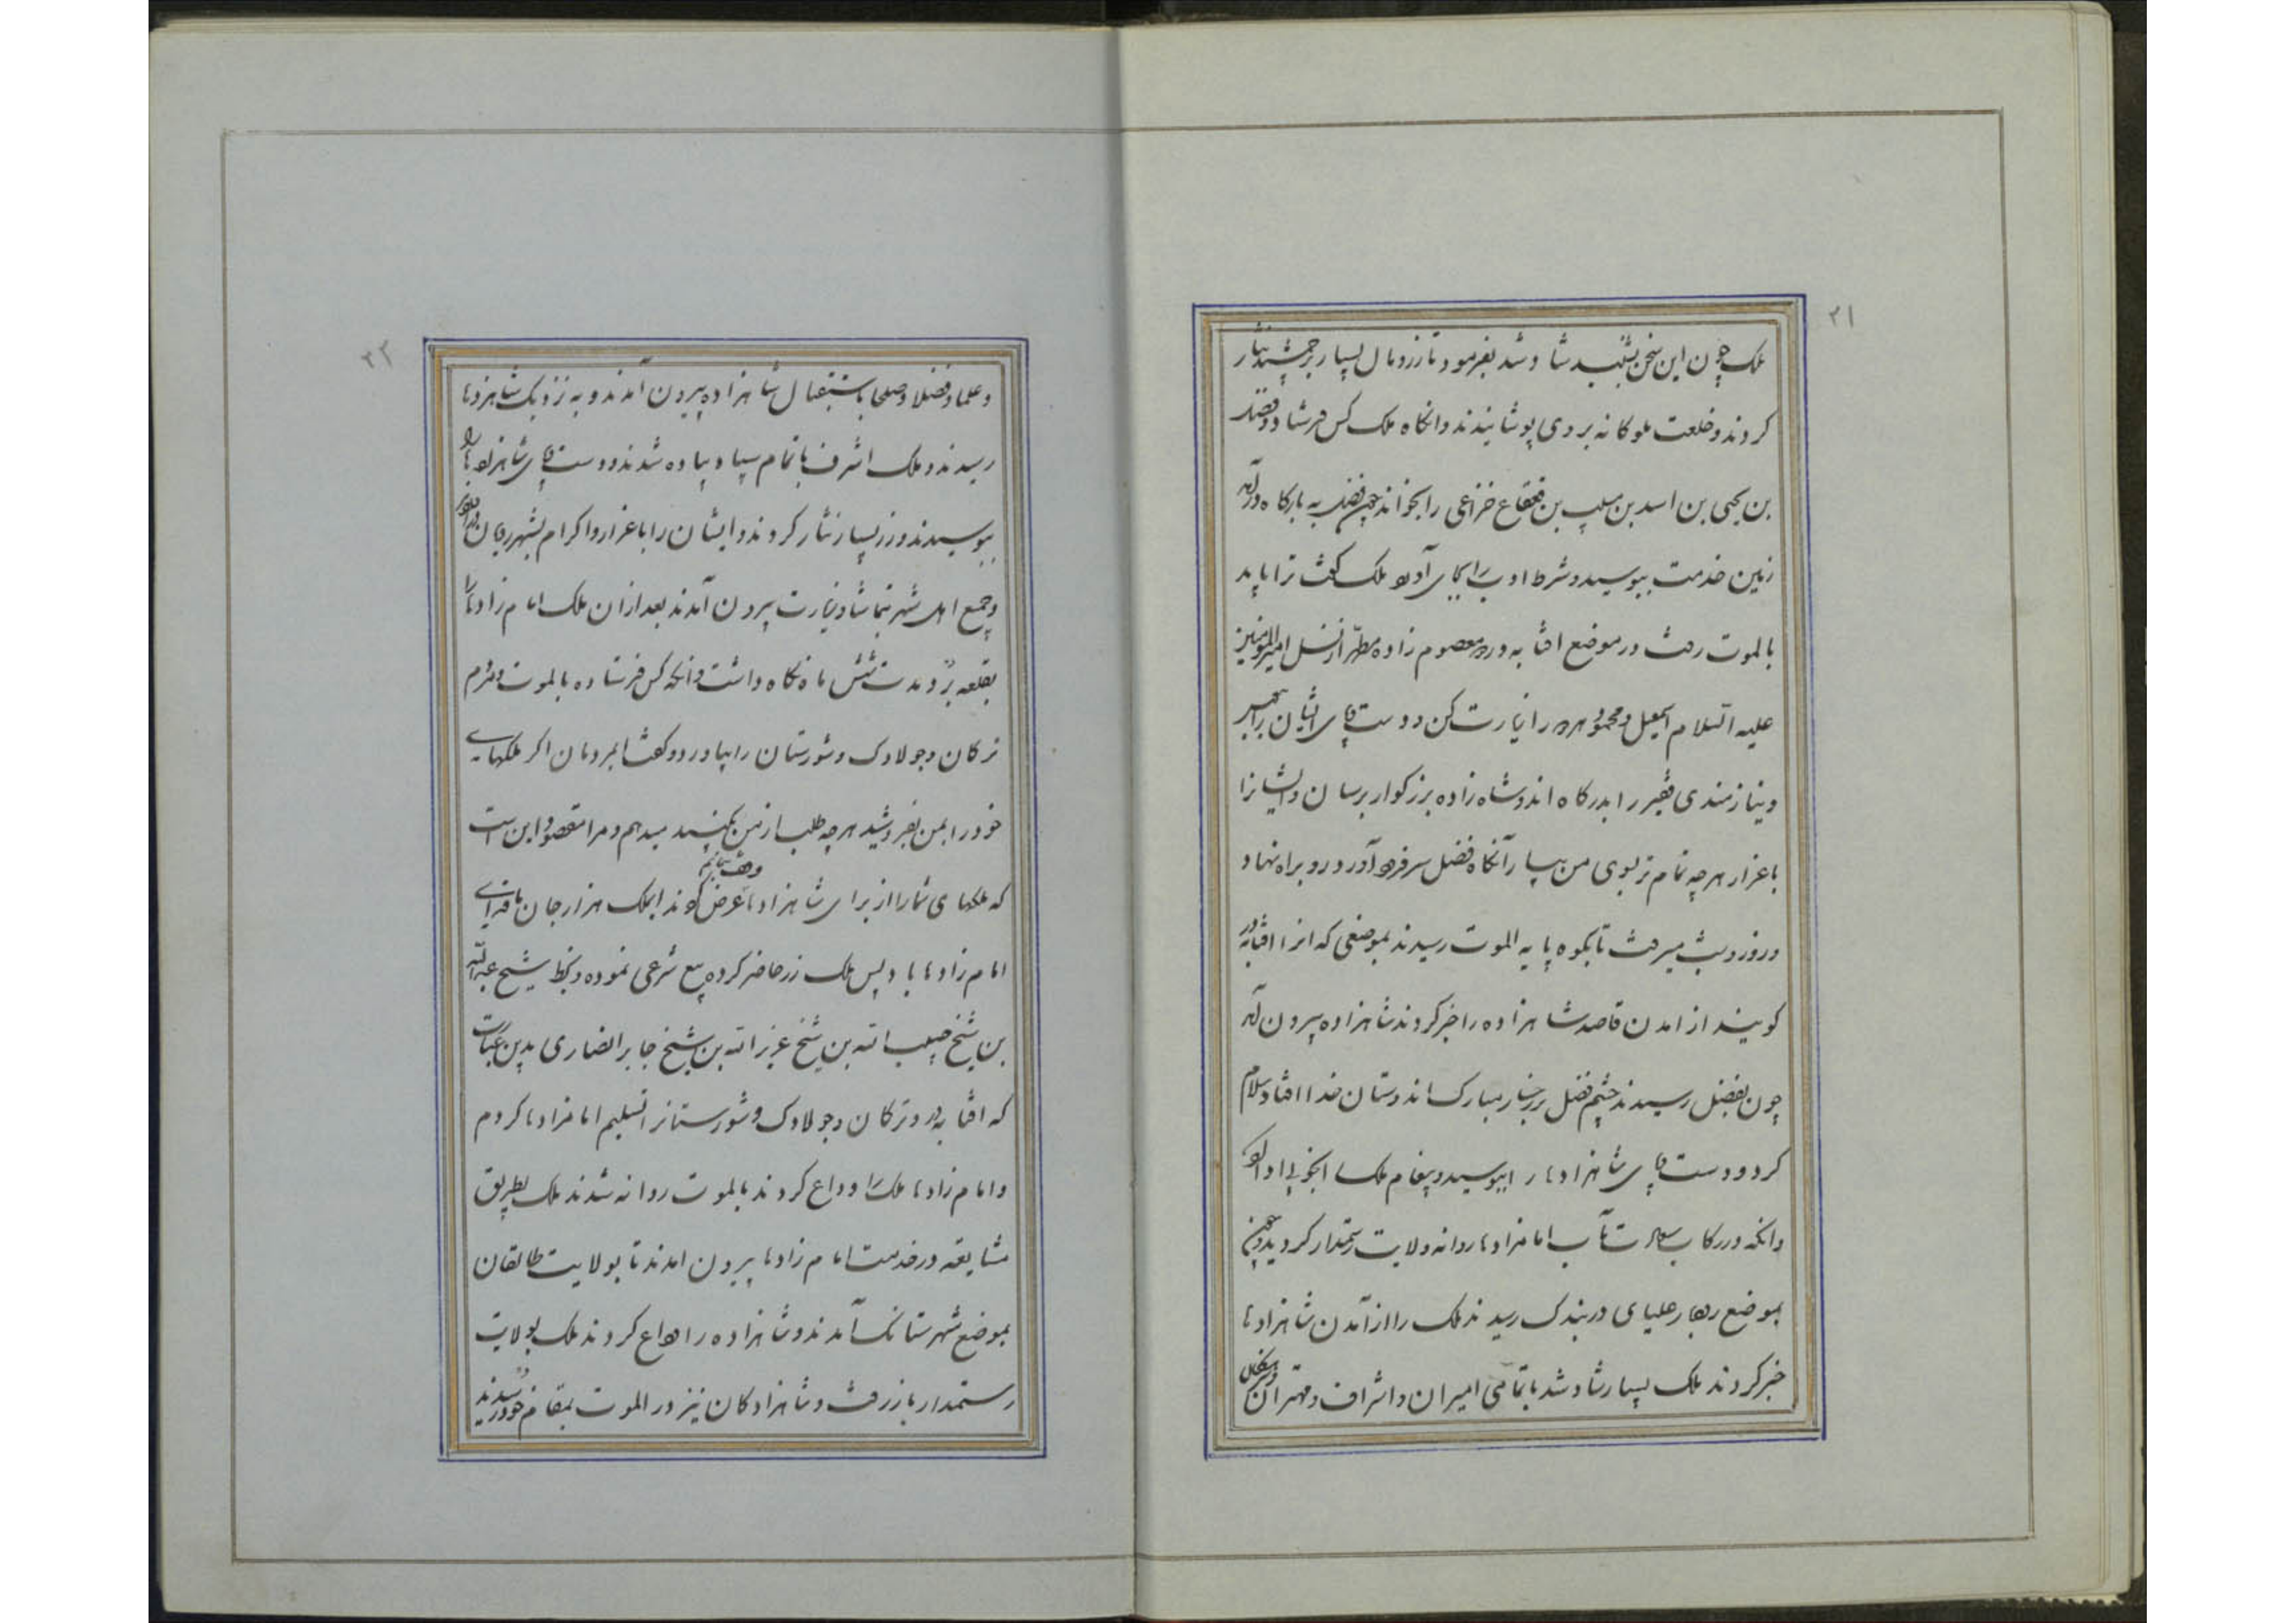 ۲۱
ملک چون این سخن بشنید شاد شد بفرمود تا زر و مال بسیار بر جمشید نثار
کردند و خلعت ملوکانه بر وی پوشانیدند وانکاه ملک کس فرستاد و فضل
بن یحیی بن اسد بن مسلب بن قعقاع خزاعی را بخواند چون فضل به بارکاه درآمد
زمین خدمت ببوسید و شرط ادب را بجای آورد ملک کفت ترا باید
بالموت رفت در موضع افتابه در دو معصوم زاده مطهر از نسل امیرالمومنین
علیه السلام اسمعیل و محمود هر دو را زیارت کن دو دست و پای ایشان را ببوس
و نیازمندی فقیر را بدرکاه اندو شاه زاده بزرکوار برسان و ایشانرا
باعزاز هر چه تمام تر بسوی من بیار آنکاه فضل سر فرود آورد و رو براه نهاد
و روز و شب میرفت تا بکوه پایه الموت رسیدند بموضعی که انرا افتابه در
کویند از امدن قاصد شاهزاده را خبر کردند شاهزاده بیرون آمد
چون بفضل رسیدند چشم فضل بر رخسار مبارک اندوستان خدا افتاد سلام
کرد و دست و پای شاهزادها را ببوسید و پیغام ملک را بخوبی ادا کرد
وانکه در رکاب سعادت مآب امامزادها روانه ولایت رستمدار کردید و چون
بموضع رودبار علیای دربندک رسیدند ملک را از آمدن شاهزادها
خبر کردند ملک بسیار شاد شد با تمامی امیران و اشراف و مهتران
۲۲
و علما و فضلا و صلحا باستقبال شاهزاده بیرون آمدند و به نزدیک شاهزدها
رسیدند و ملک اشرف با تمام سپاه پیاده شدند و دست و پای شاهزادها را
ببوسیدند و زر بسیار نثار کردند و ایشان را باعزاز و اکرام بشهر رویان
و جمع اهل شهر بتماشا و زیارت بیرون آمدند بعد ازان ملک امام زادها را
بقلعه برد و مدت شش ماه نکاه داشت وانکه کس فرستاده بالموت و مردم
ترکان و جولادک و شورستان را بیاورد و کفت ایمردمان اکر ملکهای
خود را بمن بفروشید هر چه طلب از من بکنید میدهم و مرا مقصود این است
که ملکهای شما را از برای شاهزادها عرض کردند ایملک هزار جان ما فدای
امام زادها باد پس ملک زر حاضر کرده بیع شرعی نموده و بخط شیخ عبدالله
بن شیخ حبیب الله بن شیخ عزیز الله بن شیخ جابر انصاری بدین عبارت
که افتابه در و ترکان و جولادک و شورستانرا تسلیم امامزادها کردم
و امام زادها ملک را وداع کردند بالموت روانه شدند ملک بطریق
مشایعه در خدمت امام زادها بیرون امدند تا بولایت طالقان
بموضع شهرستانک آمدند و شاهزاده را وداع کردند ملک بولایت
رستمدار باز رفت و شاهزادکان نیز در الموت بمقام خود رسیدند